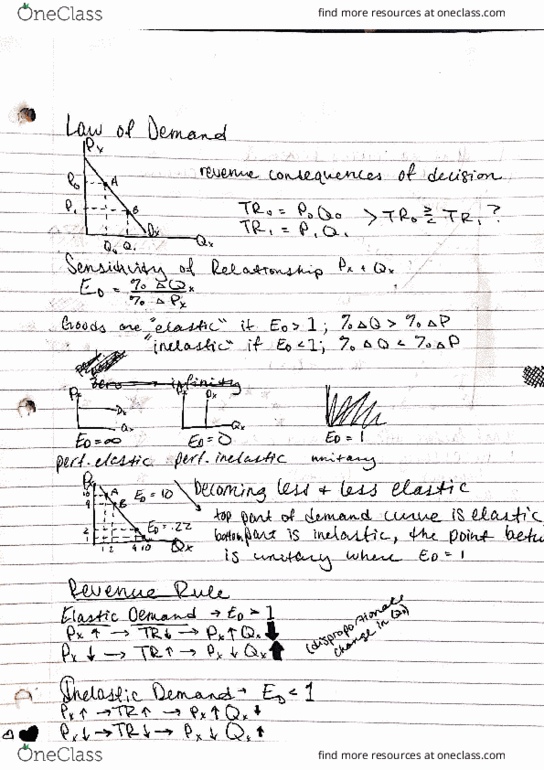 OneClass find more resources at oneclass.com
Law of Demand
Px
P0 A
revenue consequences of decision
P1 B
TR0 = P0 Q0 > TR0 ≷ TR1 ?
TR1 = P1 Q1
Dx
Q0 Q1 Qx
Sensitivity of Relationship Px + Qx
ED = % Δ Qx
% Δ Px
Goods are "elastic" if ED > 1; % ΔQ > % ΔP
"inelastic" if ED < 1; % ΔQ < % ΔP
zero → infinity
Px Px Dx
Dx
Qx Qx
ED = ∞ ED = 0 ED = 1
perf. elastic perf. inelastic unitary
Px
10 A ED = 10 becoming less & less elastic
9 B
top part of demand curve is elastic
2 ED = .22 bottom part is inelastic, the point betw
1
1 2 9 10 Qx is unitary where ED = 1
Revenue Rule
Elastic Demand → ED > 1
Px ↑ → TR ↓ → Px ↑ Qx ↓
Px ↓ → TR ↑ → Px ↓ Qx ↑
(disproportionate
change in Qx)
Inelastic Demand → ED < 1
Px ↑ → TR ↑ → Px ↑ Qx ↓
Px ↓ → TR ↓ → Px ↓ Qx ↑
OneClass find more resources at oneclass.com